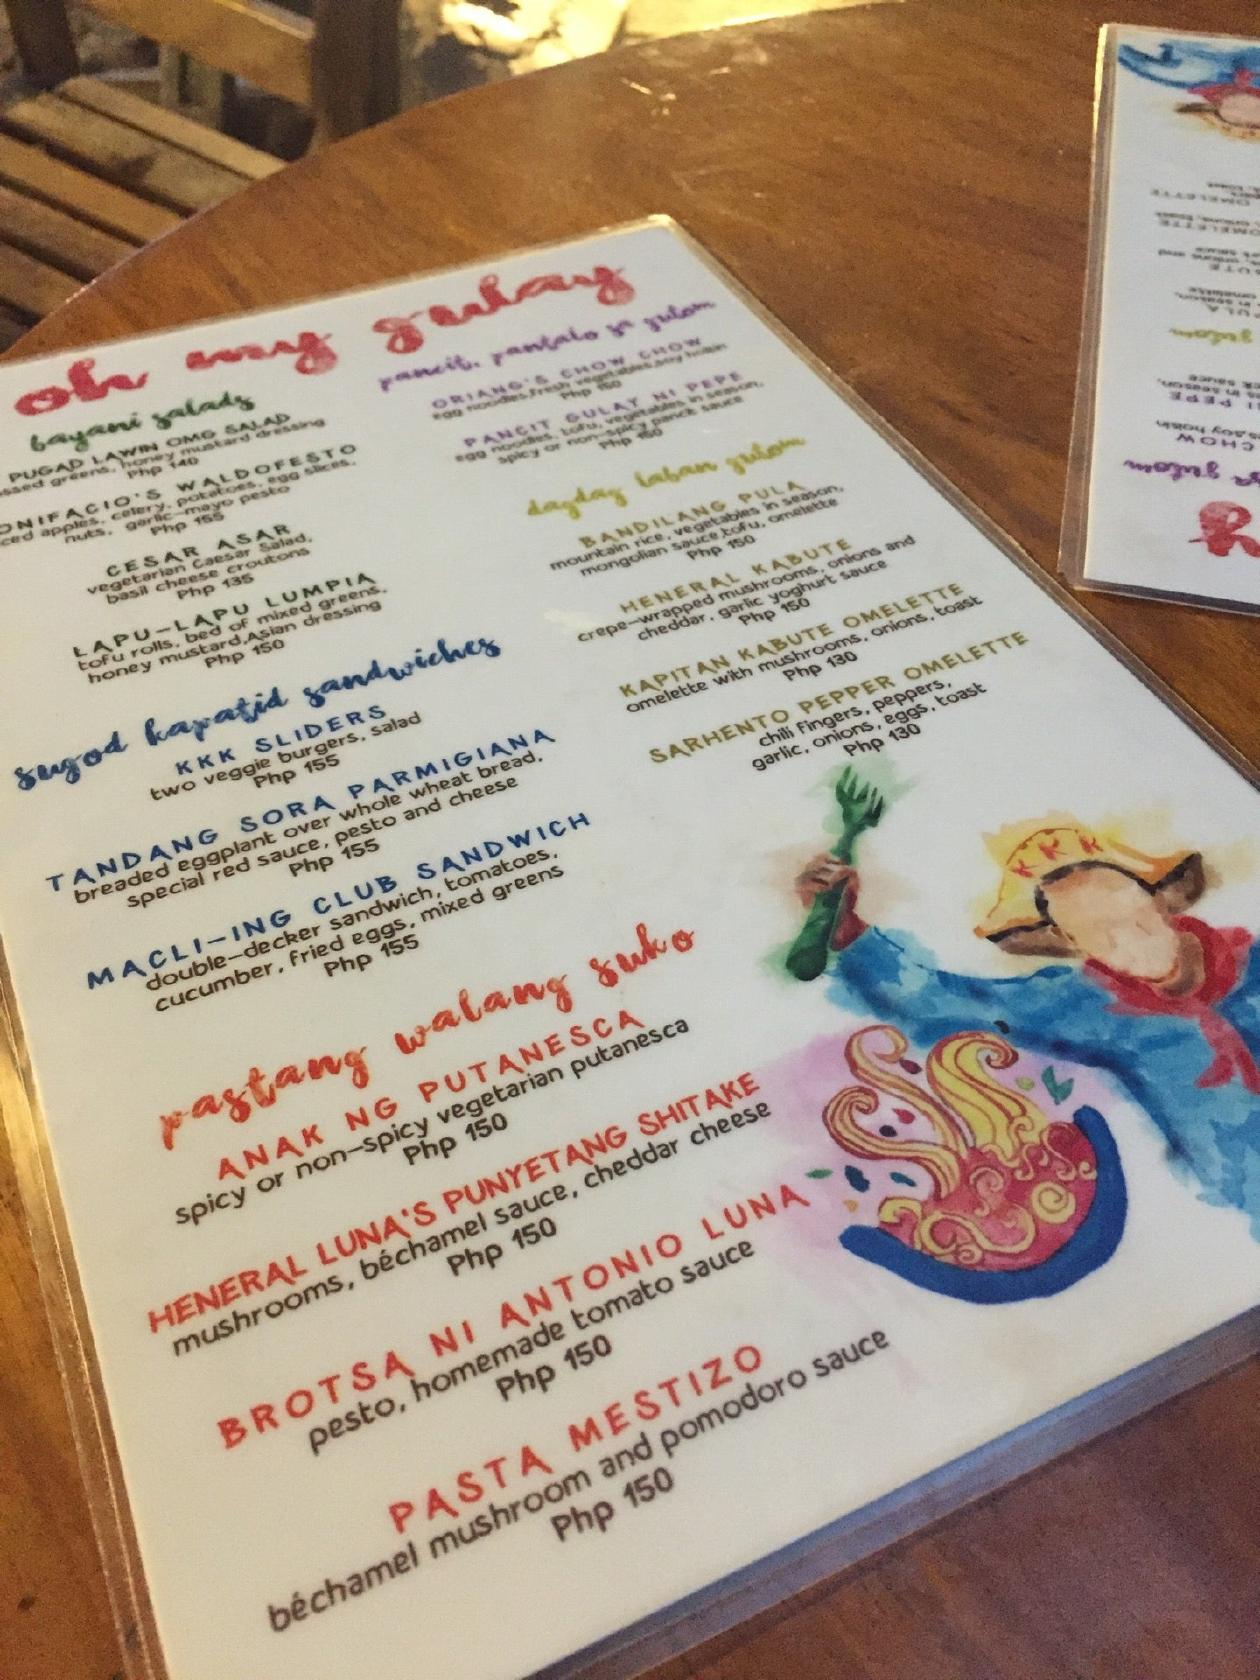 oh my gulay
bayani salads
PUGAD LAWIN OMG SALAD
greens, honey mustard dressing
Php 140
BONIFACIO'S WALDOFESTO
apples, celery, potatoes, egg slices,
nuts, garlic-mayo pesto
Php 155
CESAR ASAR
vegetarian Caesar Salad,
basil cheese croutons
Php 135
LAPU-LAPU LUMPIA
tofu rolls, bed of mixed greens,
honey mustard,Asian dressing
Php 150
sugod kapatid sandwiches
KKK SLIDERS
two veggie burgers, salad
Php 155
TANDANG SORA PARMIGIANA
breaded eggplant over whole wheat bread,
special red sauce, pesto and cheese
Php 155
MACLI-ING CLUB SANDWICH
double-decker sandwich, tomatoes,
cucumber, fried eggs, mixed greens
Php 155
pastang walang suko
ANAK NG PUTANESCA
spicy or non-spicy vegetarian putanesca
Php 150
HENERAL LUNA'S PUNYETANG SHITAKE
mushrooms, béchamel sauce, cheddar cheese
Php 150
BROTSA NI ANTONIO LUNA
pesto, homemade tomato sauce
Php 150
PASTA MESTIZO
béchamel mushroom and pomodoro sauce
Php 150
pancit, pantalo sa gutom
ORIANG'S CHOW CHOW
egg noodles,fresh vegetables,soy hoisin
Php 150
PANCIT GULAT NI PEPE
egg noodles, tofu, vegetables in season,
spicy or non-spicy pancit sauce
Php 150
dagdag laban gutom
BANDILANG PULA
mountain rice, vegetables in season,
mongolian sauce,tofu, omelette
Php 150
HENERAL KABUTE
crepe-wrapped mushrooms, onions and
cheddar, garlic yoghurt sauce
Php 150
KAPITAN KABUTE OMELETTE
omelette with mushrooms, onions, toast
Php 130
SARHENTO PEPPER OMELETTE
chili fingers, peppers,
garlic, onions, eggs, toast
Php 130
KKK